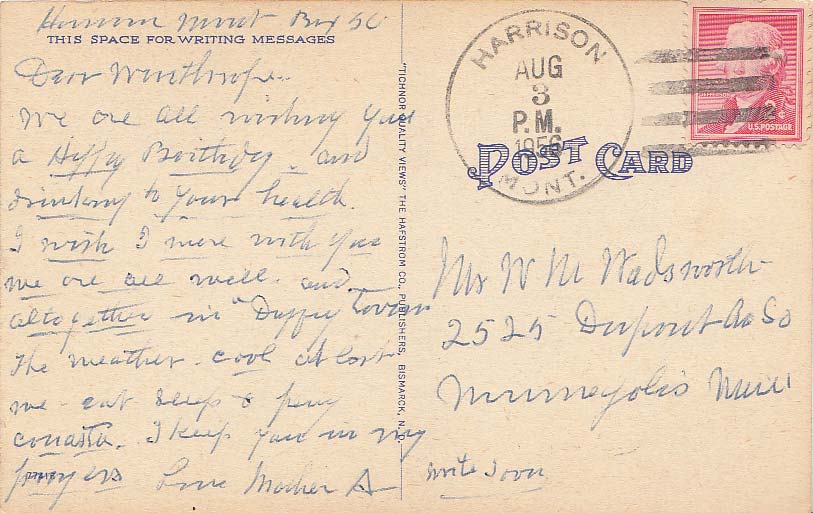 Harrison Mont Box 50
THIS SPACE FOR WRITING MESSAGES
Dear Winthrope..
We are all wishing you
a Happy Birthday. and
drinking to your health.
I wish I were with you
we are all well. and
altogether in "Duffy Town
The weather cool at last
we eat sleep & play
canasta. I keep you in my
prayers Love Mother A
"TICHNOR QUALITY VIEWS" THE HAFSTROM CO., PUBLISHERS, BISMARCK, N.D.
HARRISON
AUG
3
P.M.
1956
MONT.
2¢
U.S. POSTAGE
POST CARD
Mr W M Wadsworth
2525 Dupont Av So
Minneapolis Minn
Write Soon